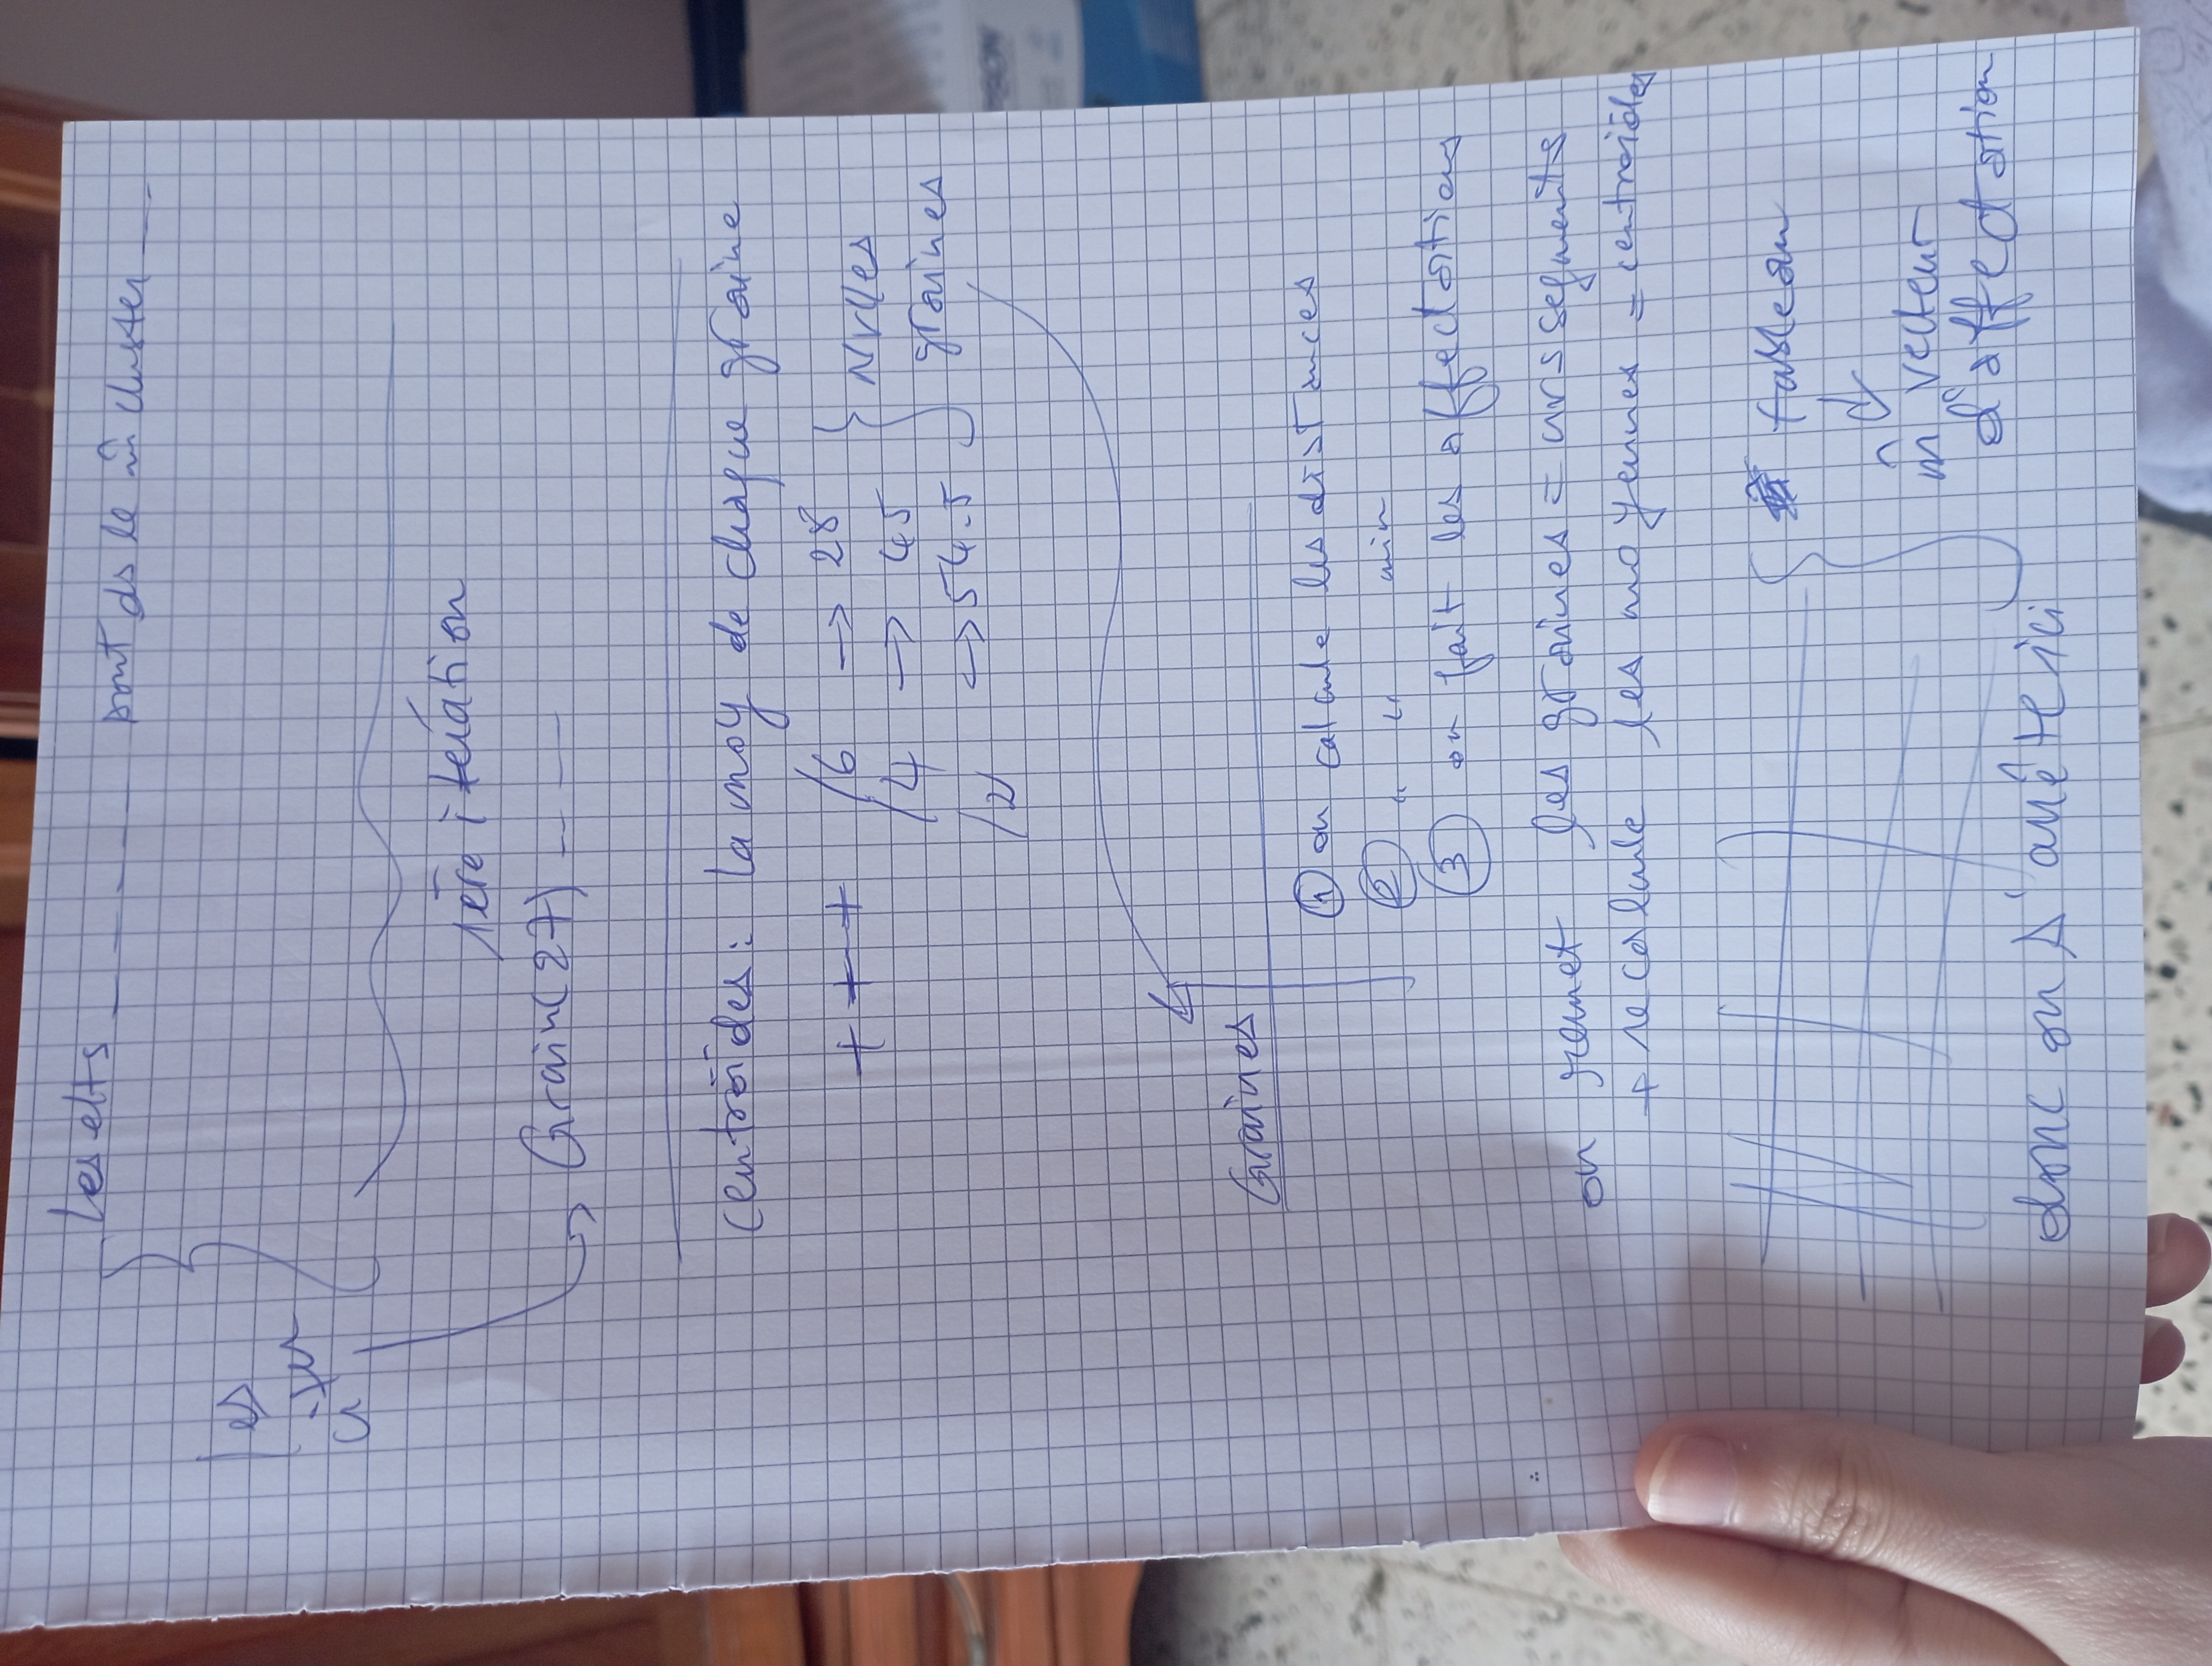 Les elts _ _ _ _ _ sont ds le m̂ cluster __
les
citer
1ère itération
Grain(27) _ _ _
centroïdes : la moy de chaque graine
+ + + /6 → 28
/4 → 45
/2 → 54.5
Nvlles
graines
Graines
① on calcule les distances
② " " min
③ on fait les affectations
on remet les graines = nvs segments
+ recalcule les moyennes = centroïdes
tableau
m̂ vecteur
d'affectation
donc on s'arrête ici
PSON